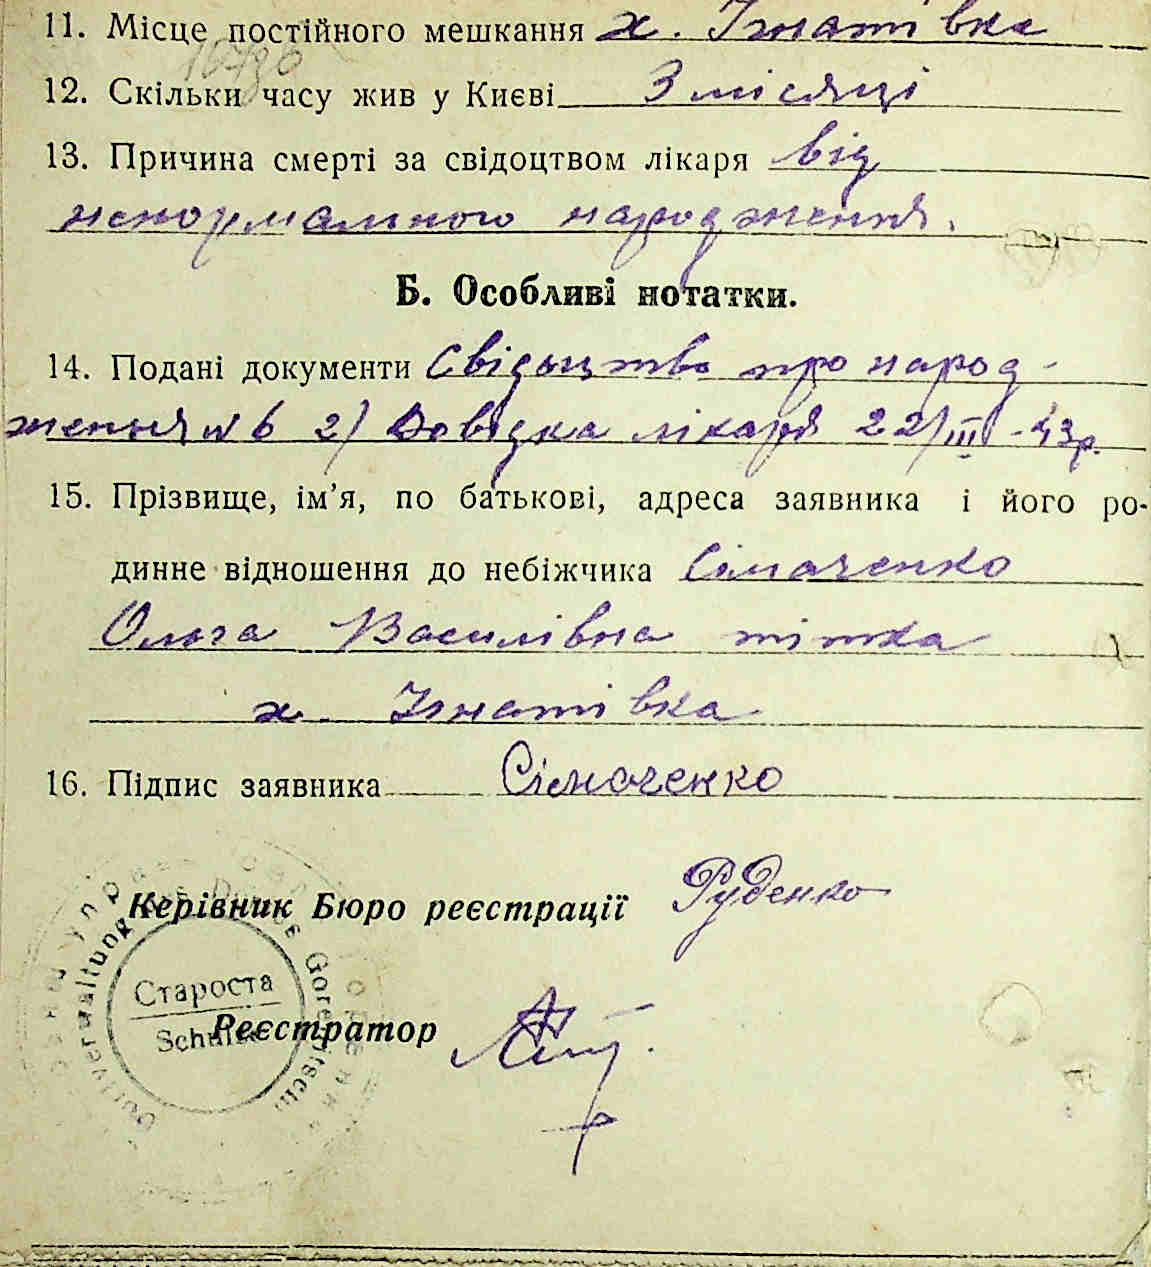 11. Місце постійного мешкання х. Ігнатівка
12. Скільки часу жив у Києві 3 місяці
13. Причина смерті за свідоцтвом лікаря від
ненормального народження.
Б. Особливі нотатки.
14. Подані документи Свідоцтво про народ-
ження №6 2) Довідка лікаря 22/III-43р.
15. Прізвище, ім'я, по батькові, адреса заявника і його ро-
динне відношення до небіжчика Сімаченко
Ольга Василівна тітка
х. Ігнатівка
16. Підпис заявника Сімаченко
Керівник Бюро реєстрації Руденко
Староста
Реєстратор